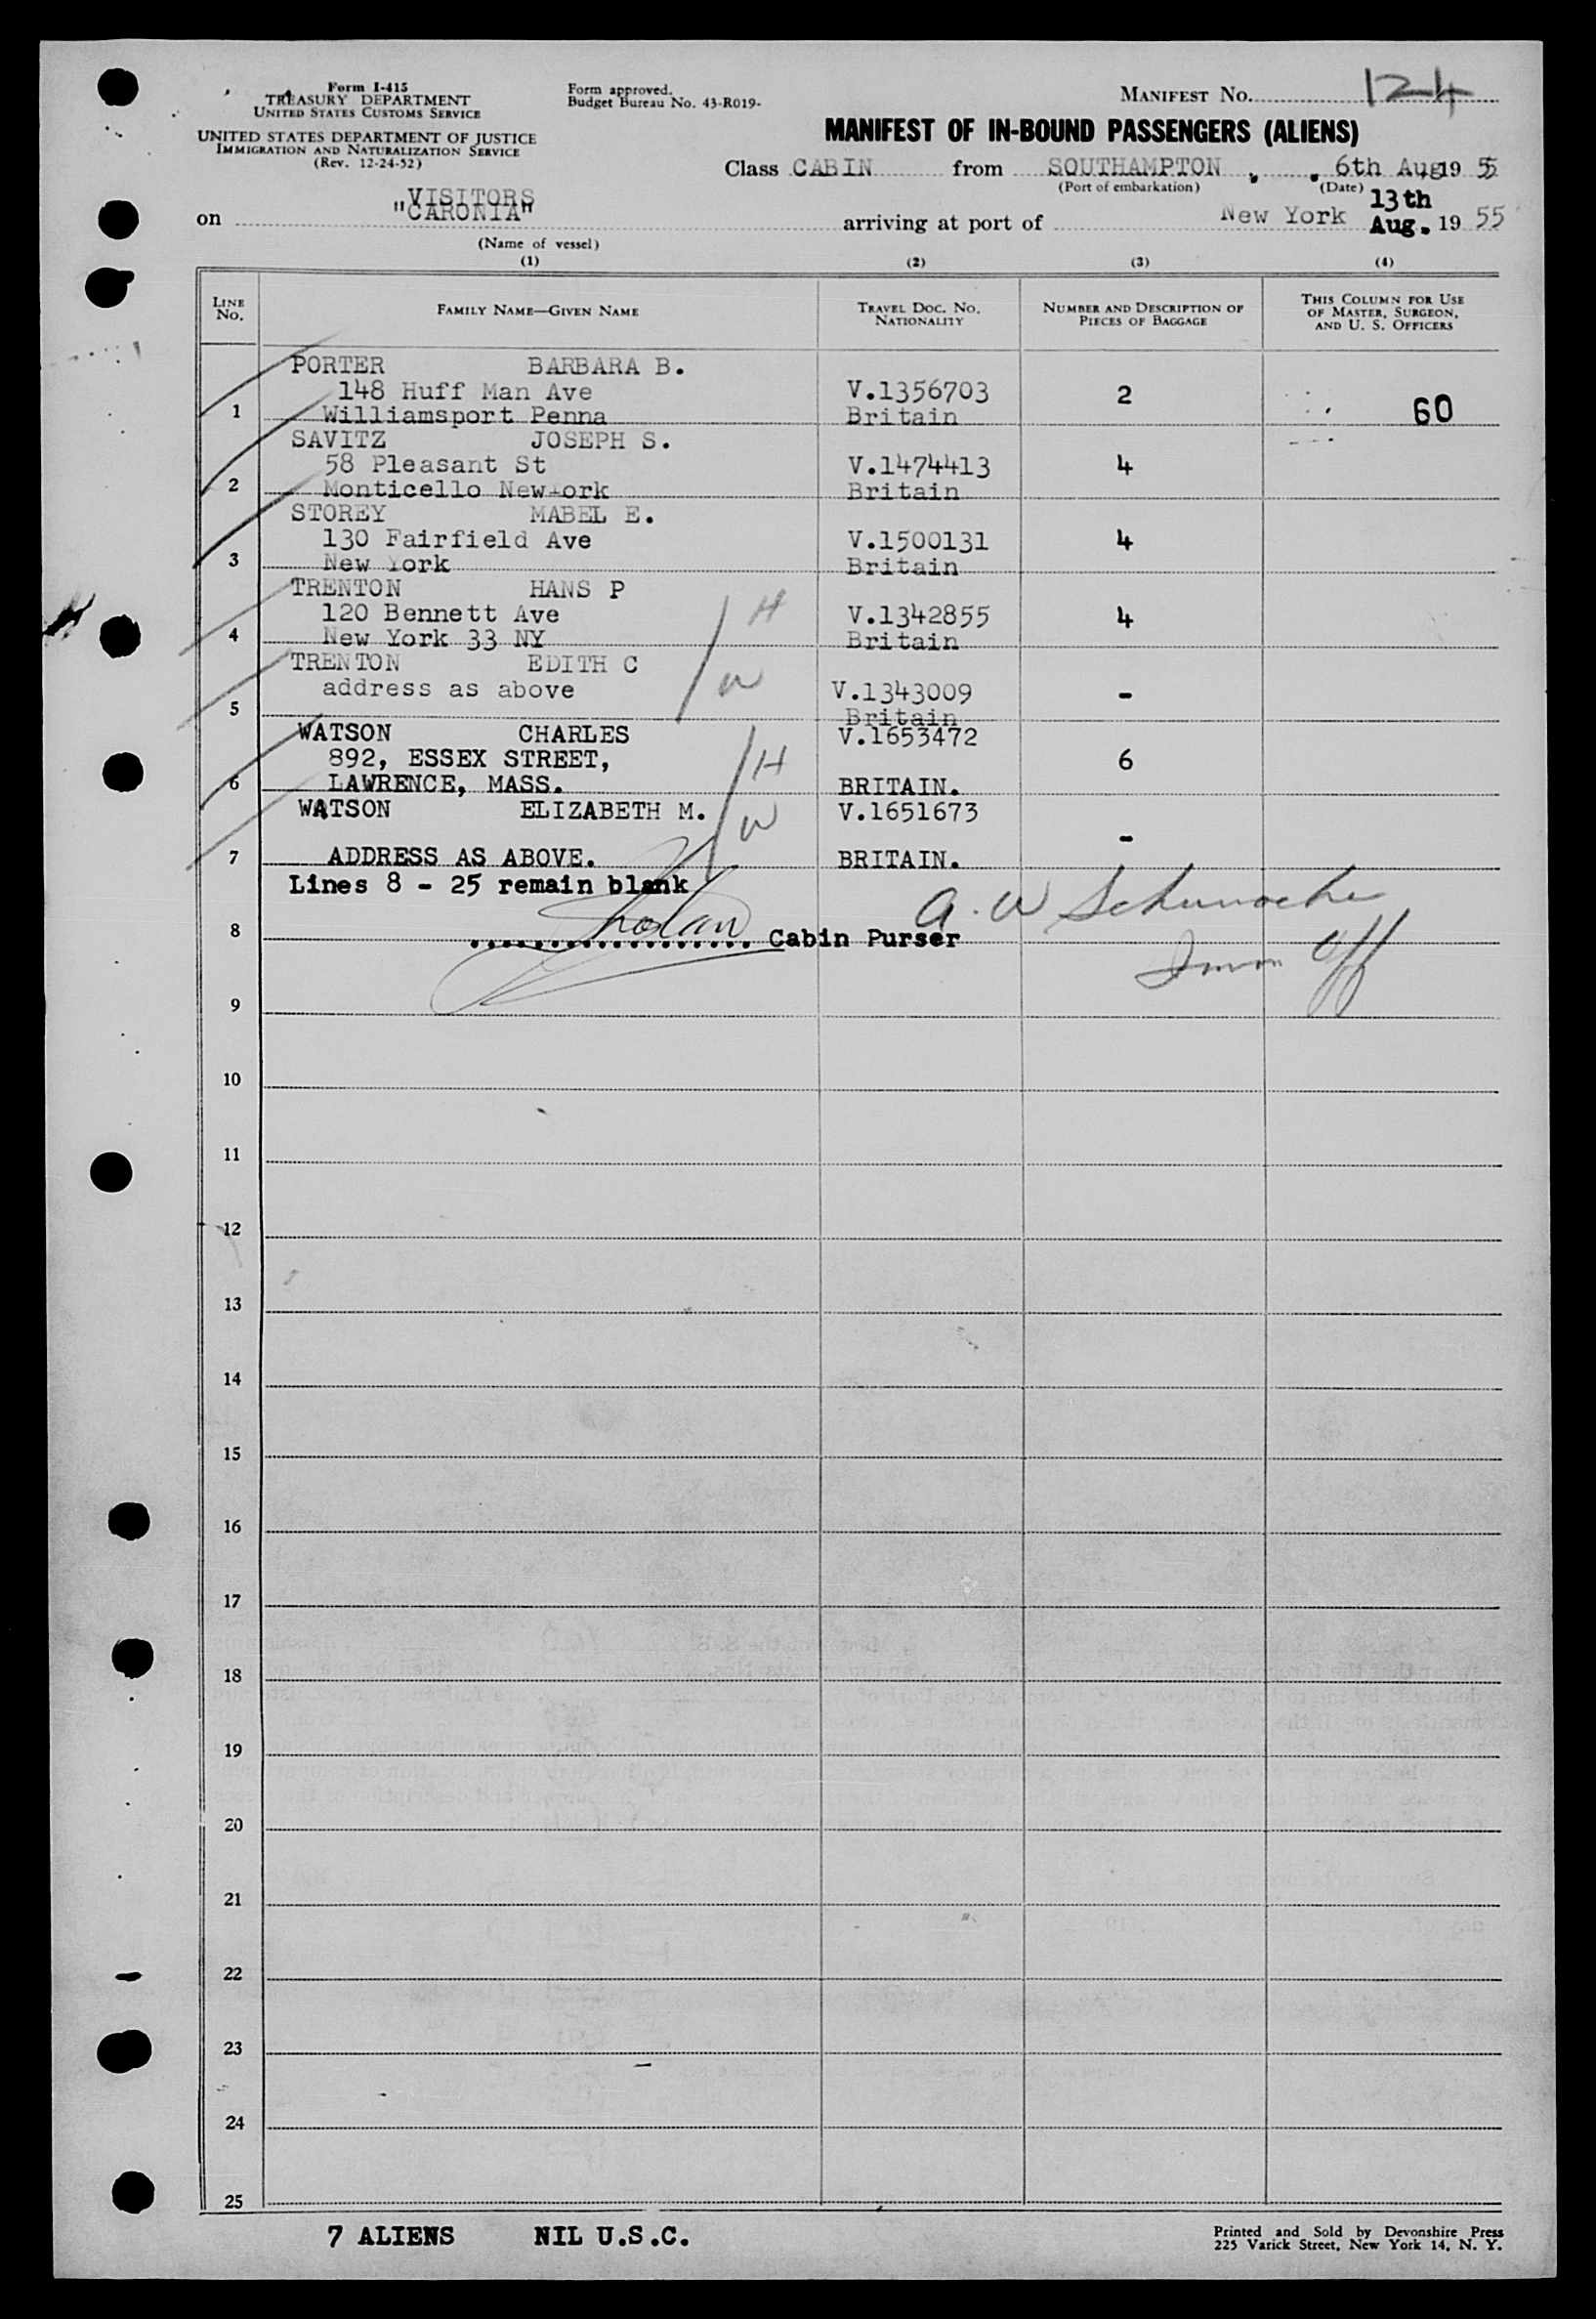 Form I-415
TREASURY DEPARTMENT
UNITED STATES CUSTOMS SERVICE
UNITED STATES DEPARTMENT OF JUSTICE
IMMIGRATION AND NATURALIZATION SERVICE
(Rev. 12-24-52)
Form approved.
Budget Bureau No. 43-R019-
MANIFEST NO. 124
MANIFEST OF IN-BOUND PASSENGERS (ALIENS)
Class CABIN from SOUTHAMPTON, 6th Aug 19 55
(Port of embarkation) (Date)
VISITORS
on "CARONIA" arriving at port of New York 13th Aug. 19 55
(Name of vessel)
(1) (2) (3) (4)
LINE NO. FAMILY NAME—GIVEN NAME TRAVEL DOC. NO. NATIONALITY NUMBER AND DESCRIPTION OF PIECES OF BAGGAGE THIS COLUMN FOR USE OF MASTER, SURGEON, AND U. S. OFFICERS
PORTER BARBARA B.
148 Huff Man Ave V.1356703 2
1 Williamsport Penna Britain 60
SAVITZ JOSEPH S.
58 Pleasant St V.1474413 4
2 Monticello New ork Britain
STOREY MABEL E.
130 Fairfield Ave V.1500131 4
3 New York Britain
TRENTON HANS P H
120 Bennett Ave V.1342855 4
4 New York 33 NY Britain
TRENTON EDITH C W
address as above V.1343009 -
5 Britain
WATSON CHARLES V.1653472
892, ESSEX STREET, H 6
6 LAWRENCE, MASS. BRITAIN.
WATSON ELIZABETH M. W V.1651673
-
7 ADDRESS AS ABOVE. BRITAIN.
Lines 8 - 25 remain blank
A. W Schumacher
8 .................. Cabin Purser
Imm Off
9
10
11
12
13
14
15
16
17
18
19
20
21
22
23
24
25
7 ALIENS NIL U.S.C.
Printed and Sold by Devonshire Press
225 Varick Street, New York 14, N. Y.